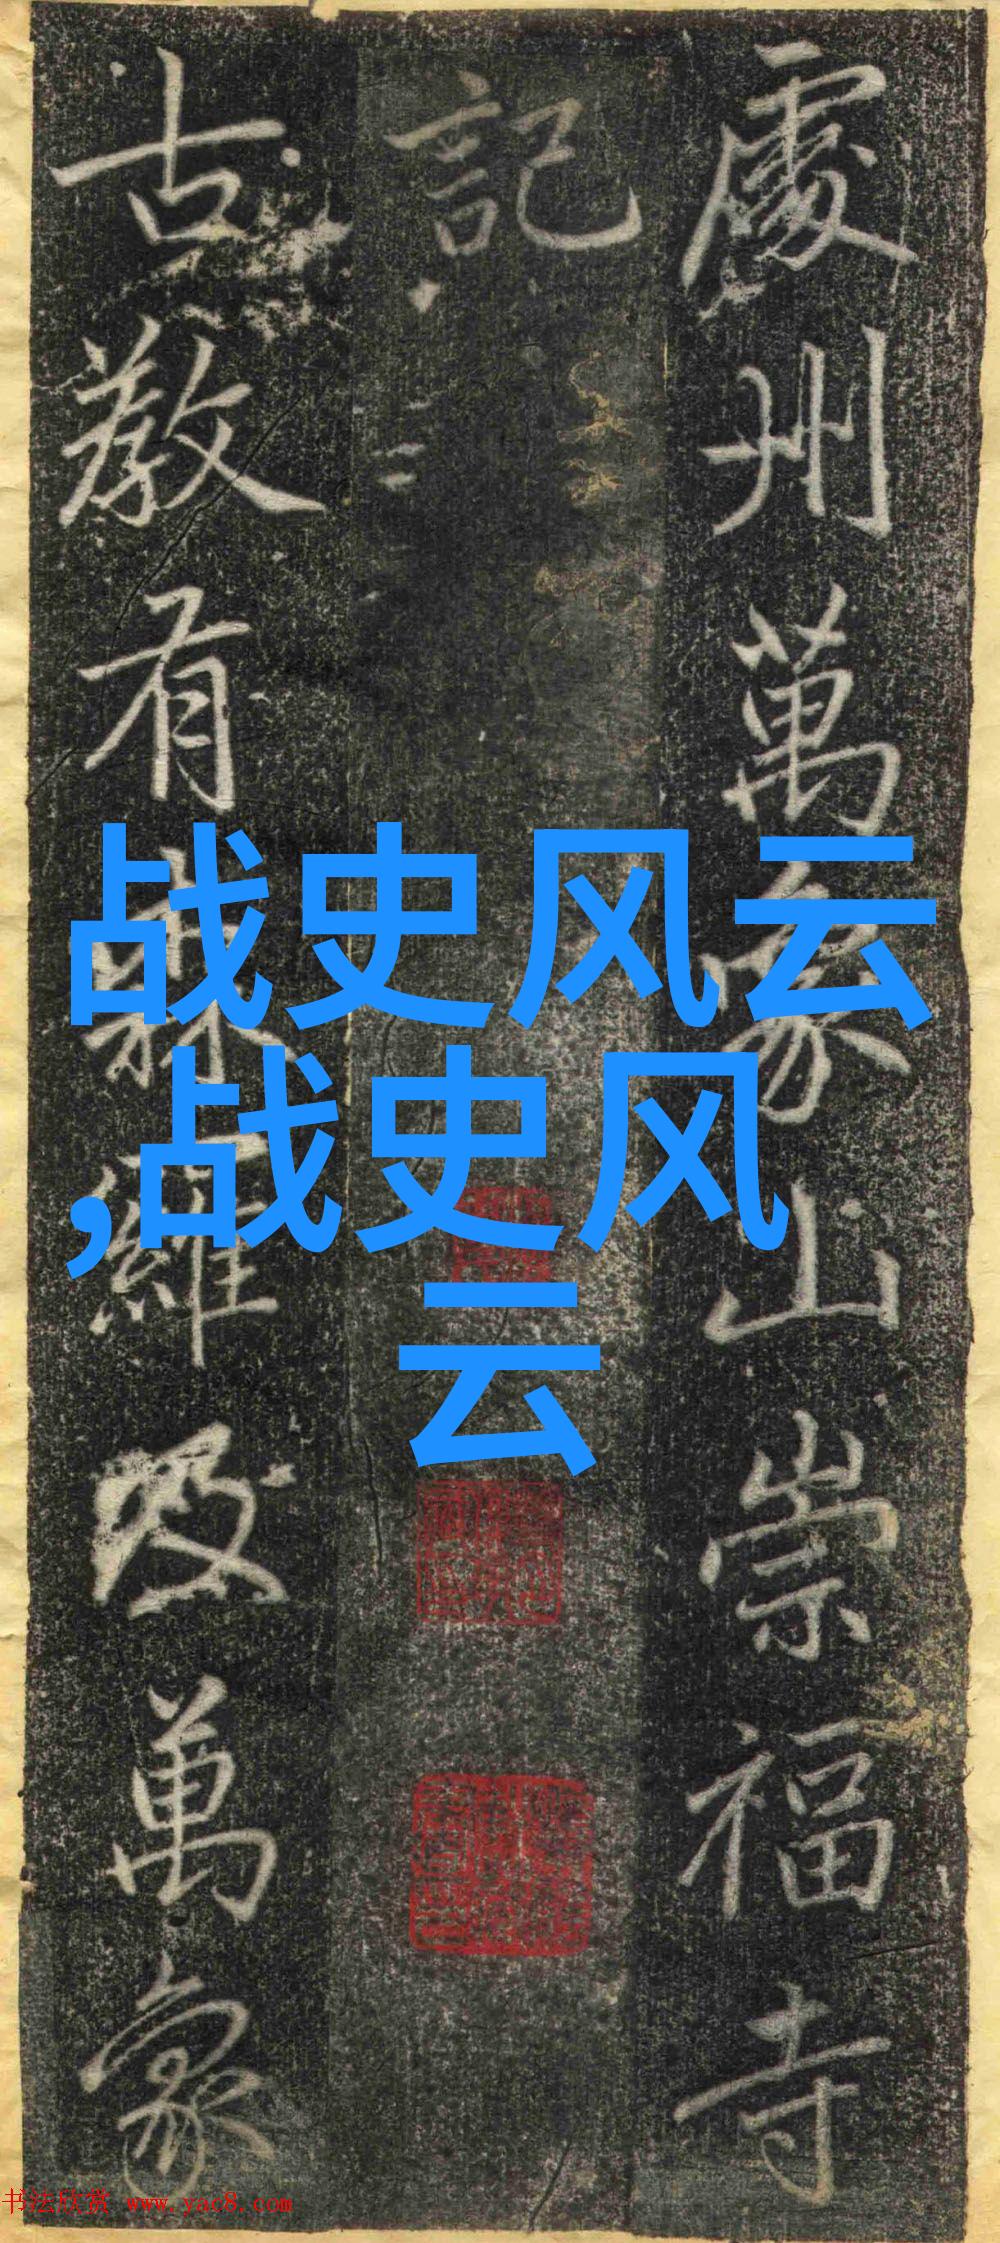 處州萬象山崇福寺
記
古敎有森羅及萬象
战史风云
,战史风
云
书法欣赏 www.yac8.com